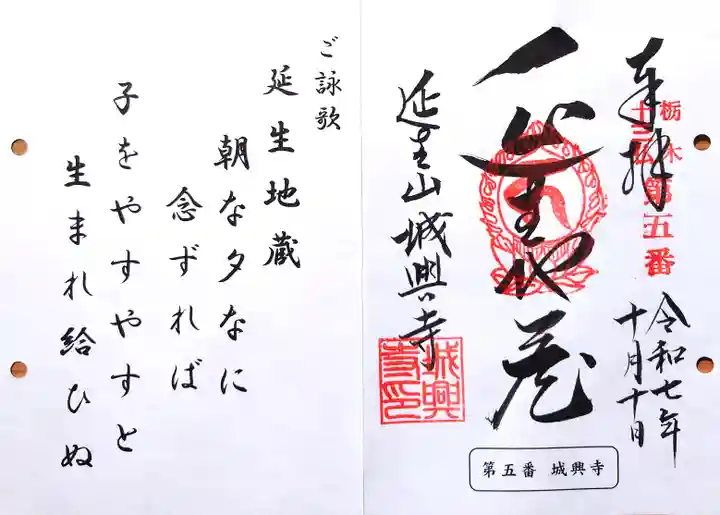 奉拝
栃木
十三仏
第五番
令和七年
十月十日
延生山城興寺
城興
寺印
第五番 城興寺
ご詠歌
延生地蔵
朝な夕なに
念ずれば
子をやすやすと
生まれ給ひぬ